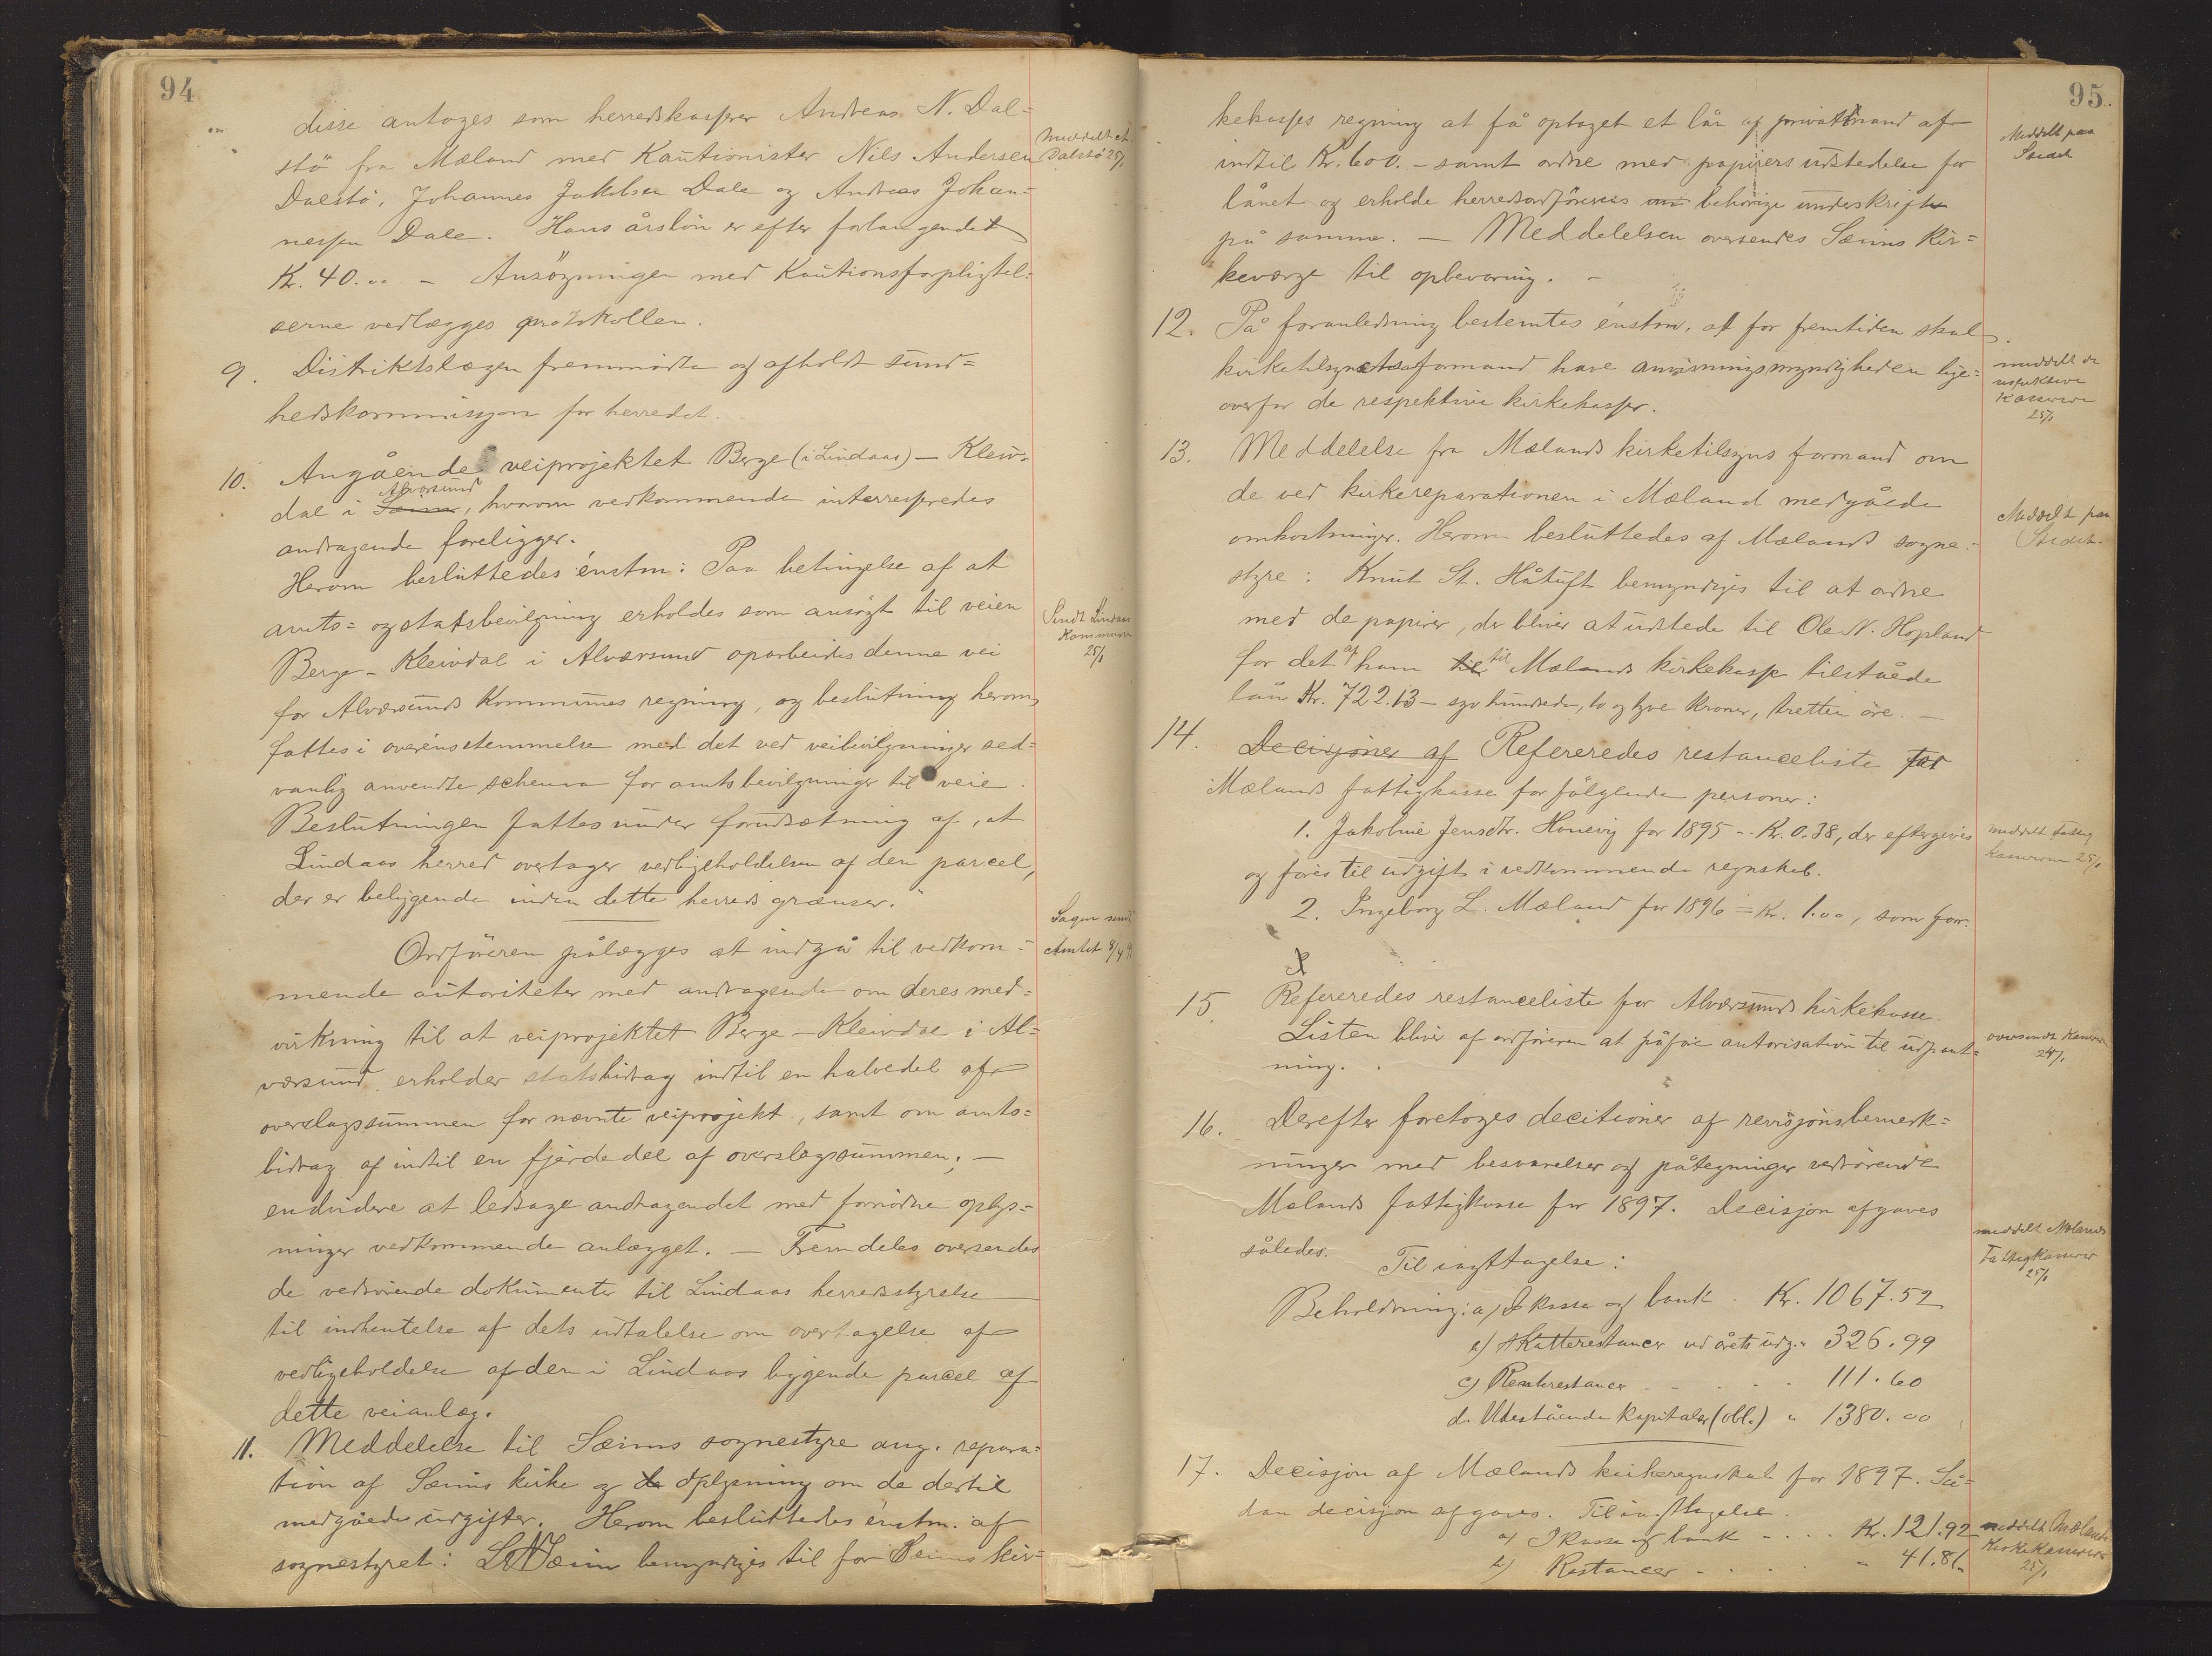 94
disse antoges som herredskasserer Andreas N. Dal=
stö fra Mæland med Kautionister Nils Andersen
Dalstö, Johannes Jakobsen Dale og Andreas Johan=
nessen Dale. Hans årslön er efter forlangendet
Kr. 40.00 – Ansögningen med Kautionsforpligtel=
serne vedlægges protokollen.
meddelt
Dalstö 25/1
9. Distriktslægen fremmödte og afholdt sund=
hedskommisjon for herredet.
10. Angående veiprojektet Berge (i Lindaas) – Kleiv=
dal i Seim Alværsund, hvorom vedkommende interresseredes
andragende foreligger.
Herom besluttedes énstm: Paa betingelse af at
amts= og statsbevilgning erholdes som ansögt til veien
Berge – Kleivdal i Alværsund oparbeides denne vei
for Alværsunds Kommunes regning, og beslutning herom
fattes i overensstemmelse med det ved veibevilgninger sed=
vanlig anvendte schema for amtsbevilgninger til veie.
Beslutningen fattes under forudsætning af, at
Lindaas herred overtager vedligeholdelsen af den parcel,
der er beliggende inden dette herreds grænser."
Sendt Lindaas
Kommune
25/1
Ordföreren pålægges at indgå til vedkom=
mende autoriteter med andragende om deres med=
virkning til at veiprojektet Berge – Kleivdal i Al=
værsund erholder statsbidrag indtil en halvedel af
overslagssummen for nævnte veiprojekt, samt om amts=
bidrag af indtil en fjerdedel af overslagssummen; –
endvidere at ledsage andragendet med fornödne oplys=
ninger vedkommende anlægget. – Fremdeles oversendes
de vedrörende dokumenter til Lindaas herredsstyrelse
til indhentelse af dets udtalelse om overtagelse af
vedligeholdelse af den i Lindaas liggende parcel af
dette veianlæg.
Sagen sendt
Amtet 8/4
11. Meddelelse til Sæims sognestyre ang. repara=
tion af Sæims kirke og de oplysning om de dertil
medgåede udgifter. Herom besluttedes énstm. af
sognestyret: Sæim bemyndiges til for Seims kir=
95.
kekasses regning at få optaget et lån af privatmand af
indtil Kr. 600. – samt ordne med papirers udstedelse for
lånet og erholde herredsordförerens behörige underskrifter
på samme. – Meddelelsen oversendes Sæims kir=
keværge til opbevaring. –
Meddelt paa
Stedet
12. På foranledning bestemtes énstm. at for fremtiden skal
kirketilsynets formand have anvisningsmyndigheden lige=
overfor de respektive kirkekasser.
meddelt de
respektive
Kasserere
25/1
13. Meddelelse fra Mælands kirketilsyns formand om
de ved kirkereparationen i Mæland medgåede
omkostninger. Herom besluttedes af Mælands sogne=
styre: Knut St. Håtuft bemyndiges til at ordne
med de papirer, der bliver at udstede til Ole N. Hopland
for det af ham til til Mælands kirkekasse tilståede
lån Kr. 722.13 – syv hundrede, to og tyve Kroner, tretten öre. –
Meddelt paa
Stedet
14. Decisjoner af Refereredes restanceliste for
Mælands fattigkasse for fölgende personer:
1. Jakobine Jensdtr. Honevig for 1895 – Kr. 0.38, der eftergives
og föres til udgift i vedkommende regnskab.
2. Ingeborg L. Mæland for 1896 = Kr. 1.00, som for.
meddelt Fattig
kassereren 25/1
15. Refereredes restanceliste for Alværsunds kirkekasse.
Listen bliver af ordföreren at påföie autorisation til udpant=
ning.
oversendt Kasserer
25/1
16. Derefter foretoges decitioner af revisjonsbemærk=
ninger med besvarelser og påtegninger vedrörende
Mælands fattigkasse for 1897. Decisjon afgaves
således.
Til iagttagelse:
Beholdning: a) I kassa og bank Kr. 1067.52
b) Skatterestancer ved årets udg. " 326.99
c) Renterestancer – – – 111.60
d. Udestående kapitaler (obl.) " 1380.00
meddelt Mælands
Fattigkasserer
25/1
17. Decisjon af Mælands kirkeregnskab for 1897. Så=
dan decisjon afgaves. Til iagttagelse
a) I kassa og bank – – – Kr. 121.92
b) Restancer – – – " 41.86
meddelt Mælands
Kirkekasserer
25/1